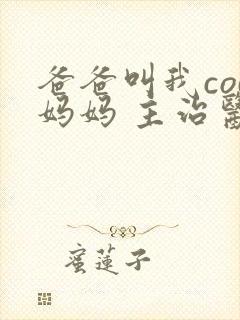 爸爸叫我co
妈妈 主治
蜜莲子